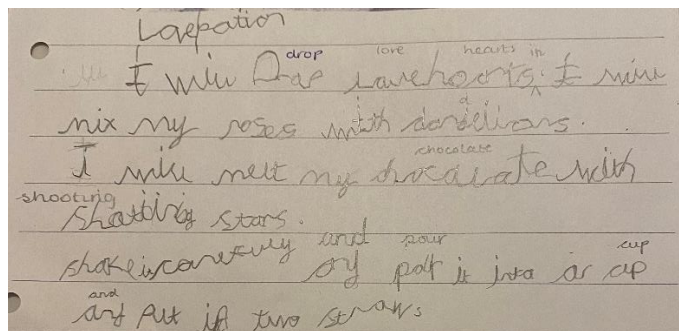 Lovepation
drop love hearts in
I will Drap lovehorts. I will
mix my roses with dandelions.
chocolate
I will melt my chocalate with
shooting
shatting stars.
and pour cup
shake is carefully ony polt it into ar cup
and
any Put if two straws